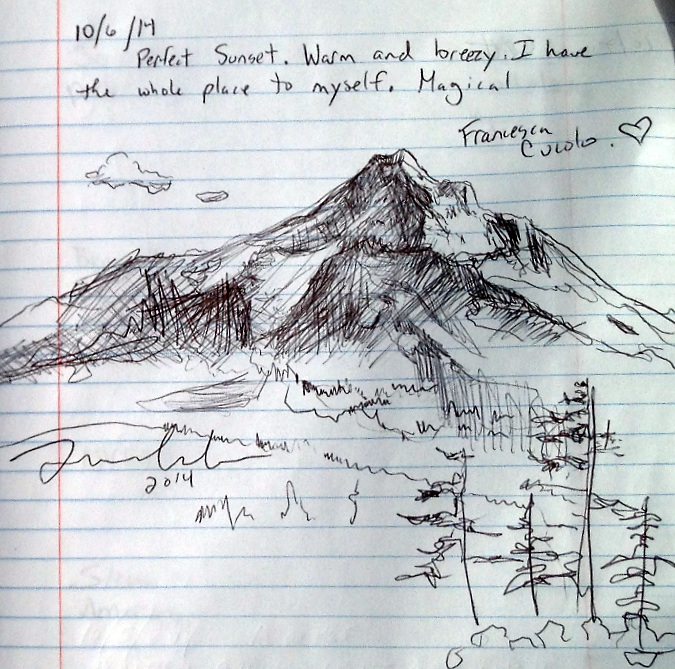 10/6/14
Perfect Sunset. Warm and breezy. I have
the whole place to myself. Magical
Francesca
Cucolo.
2014